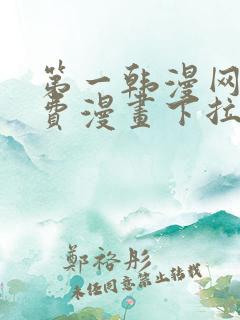 第一韩漫网
費漫畫下拉
鄭裕彤
未经同意禁止转载